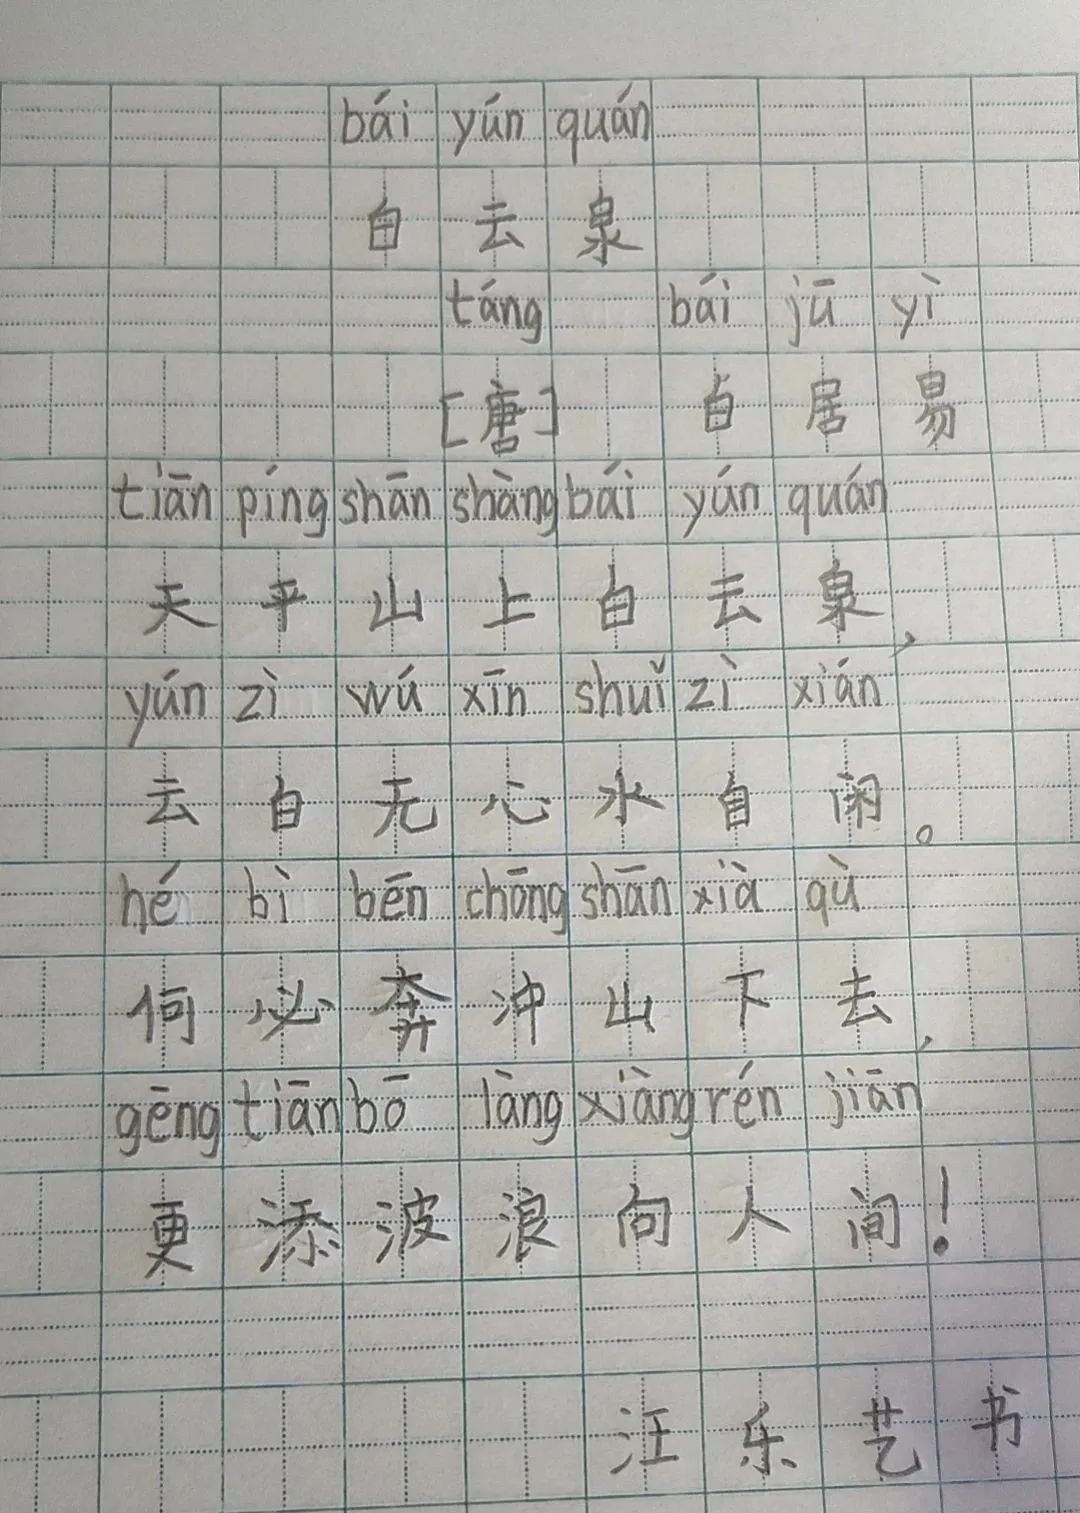 bái yún quán
白云泉
táng bái jū yì
[唐] 白居易
tiān píng shān shàng bái yún quán
天平山上白云泉,
yún zì wú xīn shuǐ zì xián
云白无心水自闲。
hé bì bēn chōng shān xià qù
何必奔冲山下去,
gēng tiān bō làng xiàng rén jiān
更添波浪向人间!
汪乐艺书